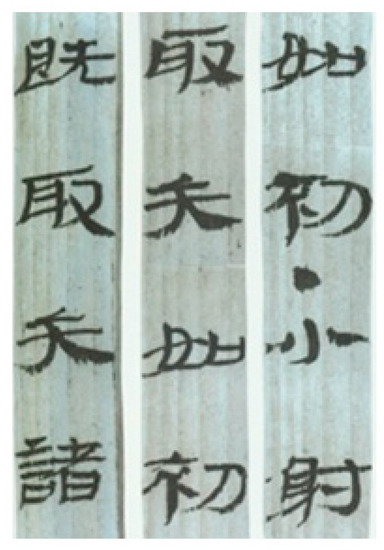 如初•小射
取矢如初
既取矢諸